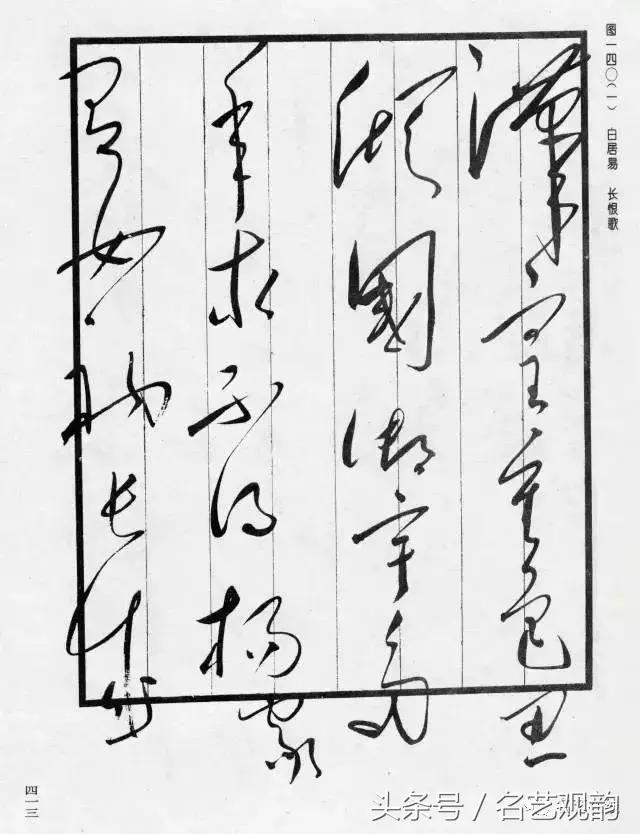 图一四〇(一) 白居易 长恨歌
漢皇重色思
傾國御宇多
年求不得楊家
有女初長成
四一三
头条号 / 名艺观韵